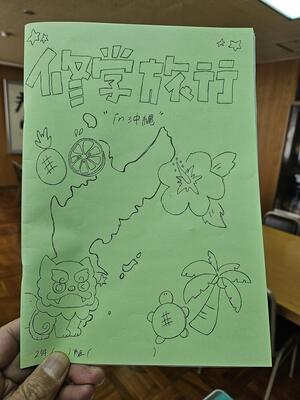 修学旅行
"in 沖縄"
2年( )組( )